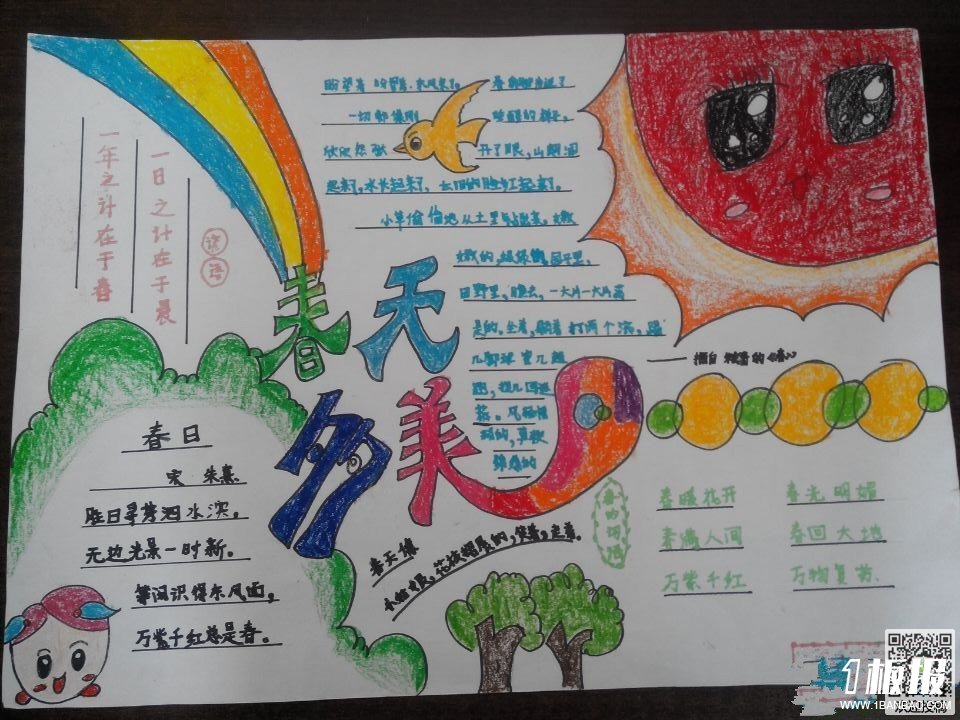 一年之计在于春
一日之计在于晨
谚语
盼望着,盼望着,东风来了,春的脚步近了
一切都像刚睡醒的样子,
欣欣然张开了眼,山朗润
起来了,水长起来了,太阳的脸红起来了。
小草偷偷地从土里钻出来,嫩
嫩的,绿绿的,园子里,
田野里,瞧去,一大片一大片满
是的。坐着,躺着,打两个滚,踢
几脚球,赛几趟
跑,捉几回迷
藏。风轻悄
悄的,草软
绵绵的
——摘自 朱自清的《春》
春天多美
春日
宋 朱熹
胜日寻芳泗水滨,
无边光景一时新。
等闲识得东风面,
万紫千红总是春。
春天像
小姑娘,花枝招展的,笑着,走着。
春的词语
春暖花开 春光明媚
春满人间 春回大地
万紫千红 万物复苏
1板报
WWW.1BANBAO.COM